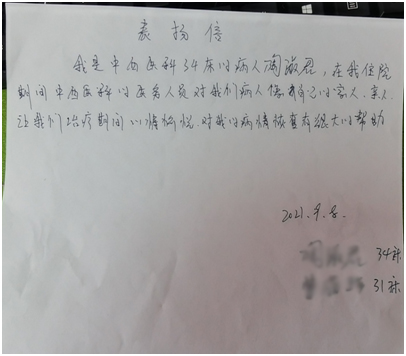 表扬信
我是中西医科34床的病人陶淑君,在我住院
期间中西医科的医务人员对我们病人像自己的家人、亲人
让我们治疗期间心情愉悦.对我的病情恢复有很大的帮助
2021.9.8.
34床
31床